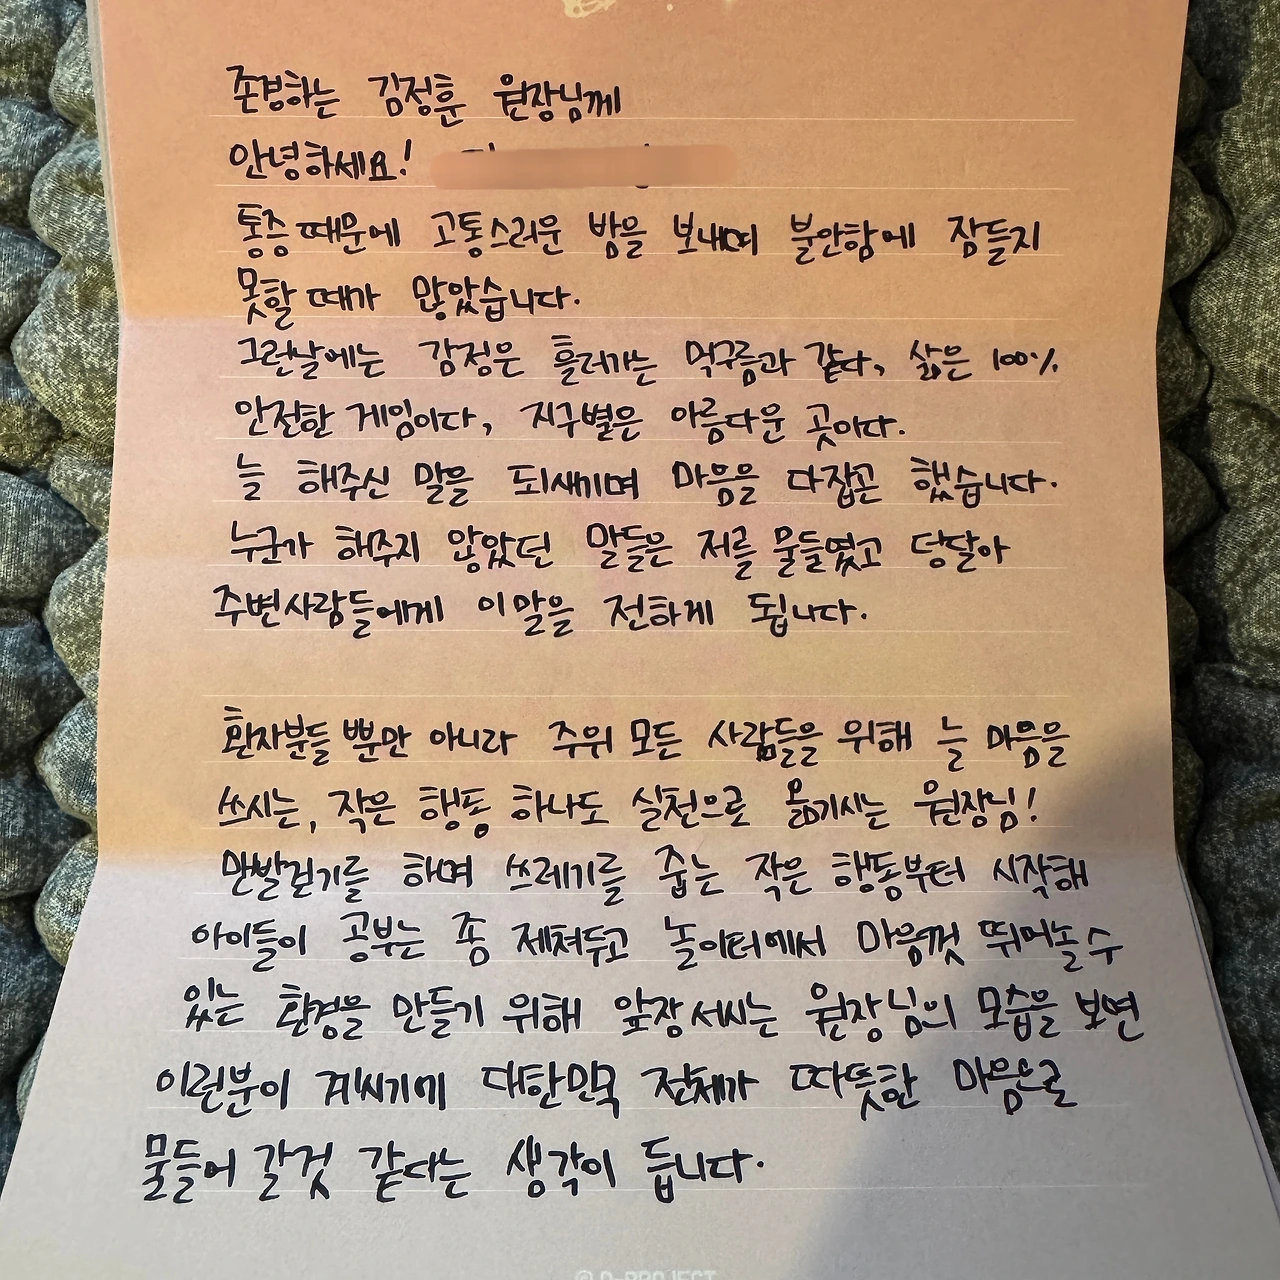 존경하는 김정훈 원장님께
안녕하세요!
통증 때문에 고통스러운 밤을 보내며 불안함에 잠들지
못할 때가 많았습니다.
그런날에는 감정은 흘러가는 먹구름과 같다, 삶은 100%
안전한 게임이다, 지구별은 아름다운 곳이다.
늘 해주신 말을 되새기며 마음을 다잡곤 했습니다.
누군가 해주지 않았던 말들은 저를 물들였고 덩달아
주변사람들에게 이 말을 전하게 됩니다.
환자분들 뿐만 아니라 주위 모든 사람들을 위해 늘 마음을
쓰시는, 작은 행동 하나도 실천으로 옮기시는 원장님!
만발걷기를 하며 쓰레기를 줍는 작은 행동부터 시작해
아이들이 공부는 좀 제쳐두고 놀이터에서 마음껏 뛰어놀 수
있는 환경을 만들기 위해 앞장 서시는 원장님의 모습을 보면
이런분이 계시기에 대한민국 전체가 따뜻한 마음으로
물들어 갈것 같다는 생각이 듭니다.